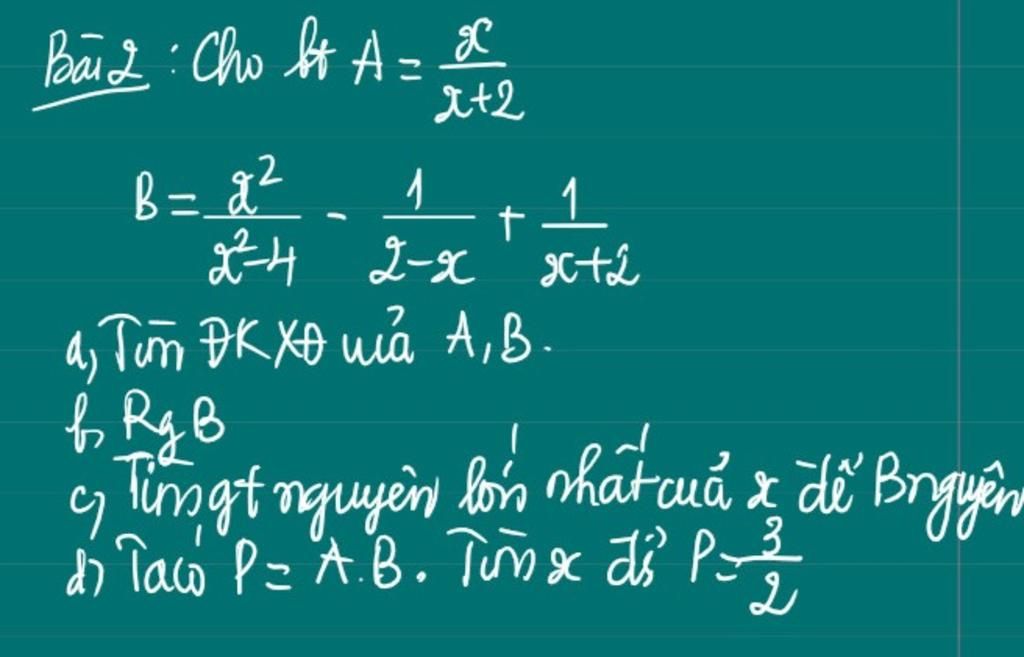 Bài 2 : Cho bt A = x/(x+2)
B = x²/(x²-4) - 1/(2-x) + 1/(x+2)
a, Tìm ĐKXĐ của A, B.
b, Rg B
c, Tìm gt nguyên lớn nhất của x để B nguyên
d, Ta có P = A.B. Tìm x để P = 3/2